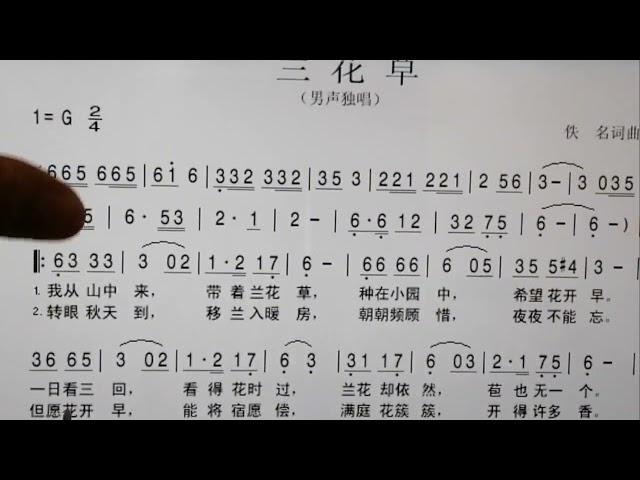 兰花草
（男声独唱）
1=G 2/4
佚 名词曲
665 665 | 61 6 | 332 332 | 35 3 | 221 221 | 2 56 | 3- | 3 035
5 | 6· 53 | 2·1 | 2- | 6·6 12 | 32 75 | 6- | 6-)
‖: 63 33 | 3 02 | 1·2 17 | 6- | 66 66 | 6 05 | 35 5#4 | 3-
1. 我从 山中 来， 带 着 兰花 草， 种在小园 中， 希望 花开 早。
2. 转眼 秋天 到， 移 兰入暖 房， 朝朝频顾 惜， 夜夜 不能 忘。
36 65 | 3 02 | 1·2 17 | 6 3 | 31 17 | 6 3 | 2·1 75 | 6-
一日看三 回， 看 得 花时 过， 兰花 却依 然， 苞 也 无一 个。
但愿花开 早， 能 将 宿愿 偿， 满庭 花簇 簇， 开 得 许多 香。